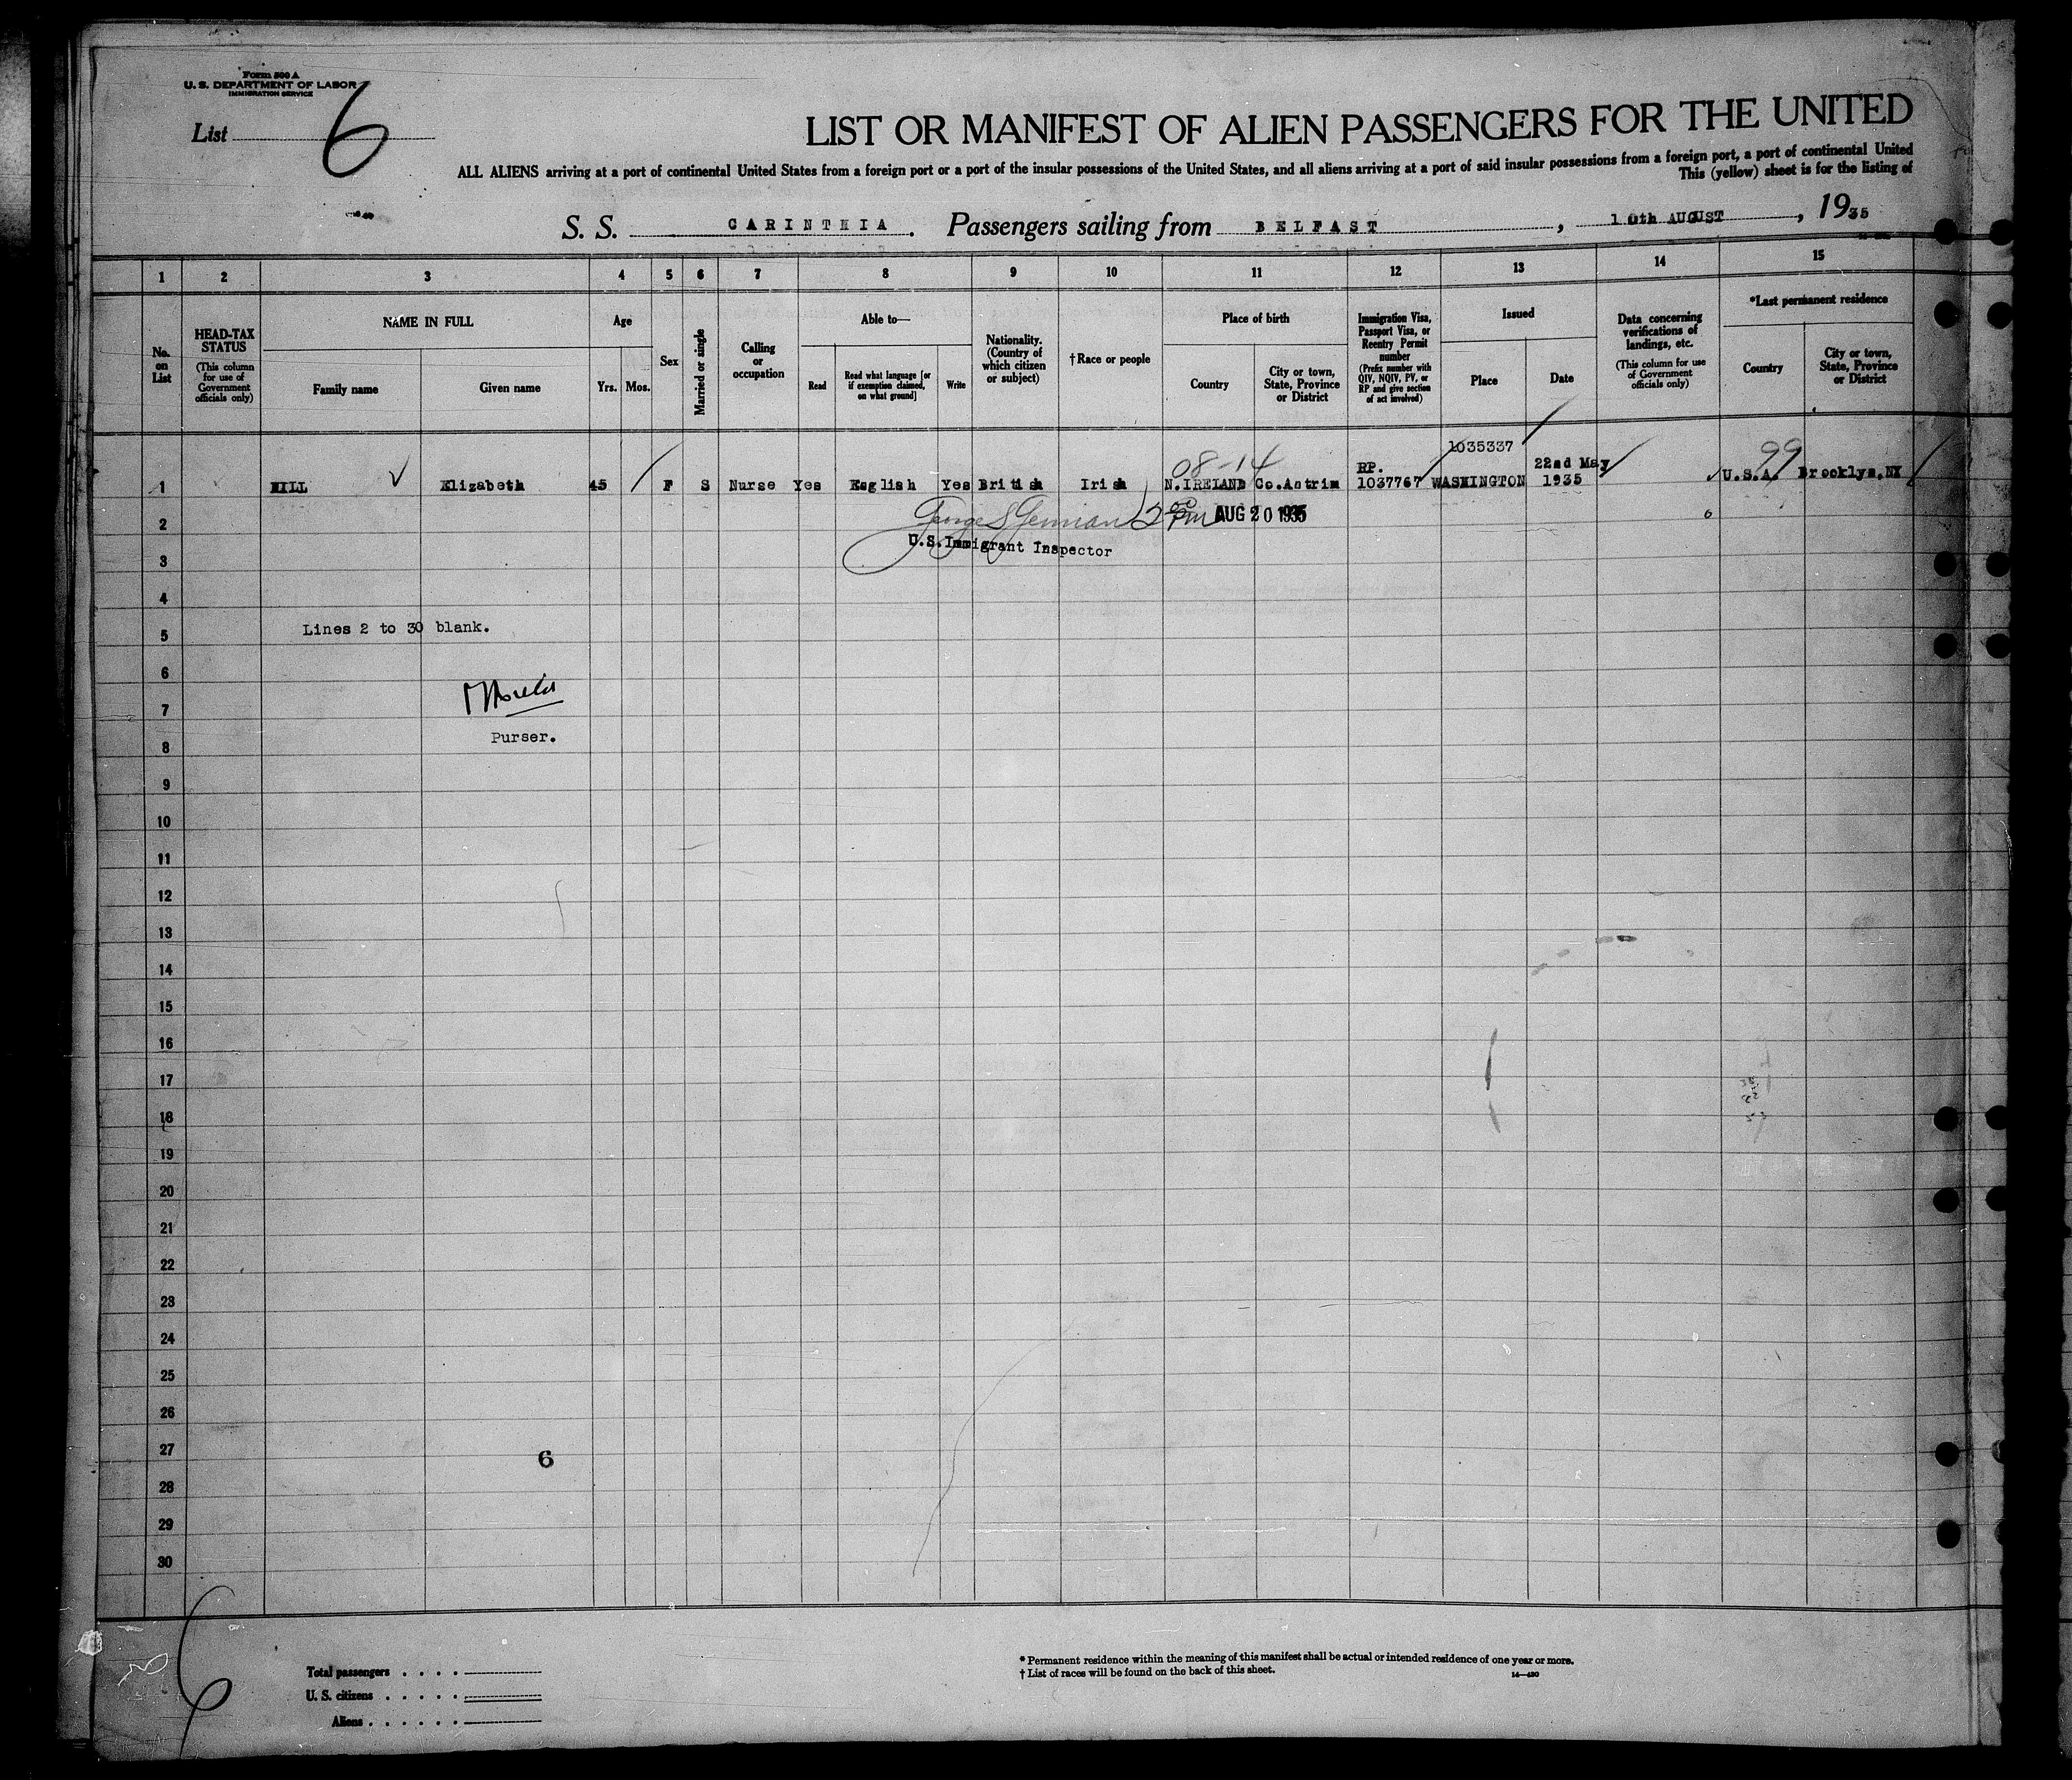 Form 500 A
U. S. DEPARTMENT OF LABOR
IMMIGRATION SERVICE
List 6
LIST OR MANIFEST OF ALIEN PASSENGERS FOR THE UNITED
ALL ALIENS arriving at a port of continental United States from a foreign port or a port of the insular possessions of the United States, and all aliens arriving at a port of said insular possessions from a foreign port, a port of continental United
This (yellow) sheet is for the listing of
S. S. CARINTHIA. Passengers sailing from BELFAST, 10th AUGUST, 1935
1 2 3 4 5 6 7 8 9 10 11 12 13 14 15
No. on List
HEAD-TAX STATUS
(This column for use of Government officials only)
NAME IN FULL
Family name
Given name
Age
Yrs.
Mos.
Sex
Married or single
Calling or occupation
Able to—
Read
Read what language [or if exemption claimed, on what ground]
Write
Nationality. (Country of which citizen or subject)
†Race or people
Place of birth
Country
City or town, State, Province or District
Immigration Visa, Passport Visa, or Reentry Permit number
(Prefix number with QIV, NQIV, PV, or RP and give section of act involved)
Issued
Place
Date
Data concerning verifications of landings, etc.
(This column for use of Government officials only)
*Last permanent residence
Country
City or town, State, Province or District
1035337
08-14 RP. 22nd May 99
1 HILL Elizabeth 45 F S Nurse Yes English Yes British Irish N.IRELAND Co.Antrim 1037767 WASHINGTON 1935 U.S.A. Brooklyn,NY
2 AUG 20 1935
U.S.Immigrant Inspector
3
4
5 Lines 2 to 30 blank.
6
7
8 Purser.
9
10
11
12
13
14
15
16
17
18
19
20
21
22
23
24
25
26
27 6
28
29
30
6
Total passengers
U. S. citizens
Aliens
* Permanent residence within the meaning of this manifest shall be actual or intended residence of one year or more.
† List of races will be found on the back of this sheet.
14—430